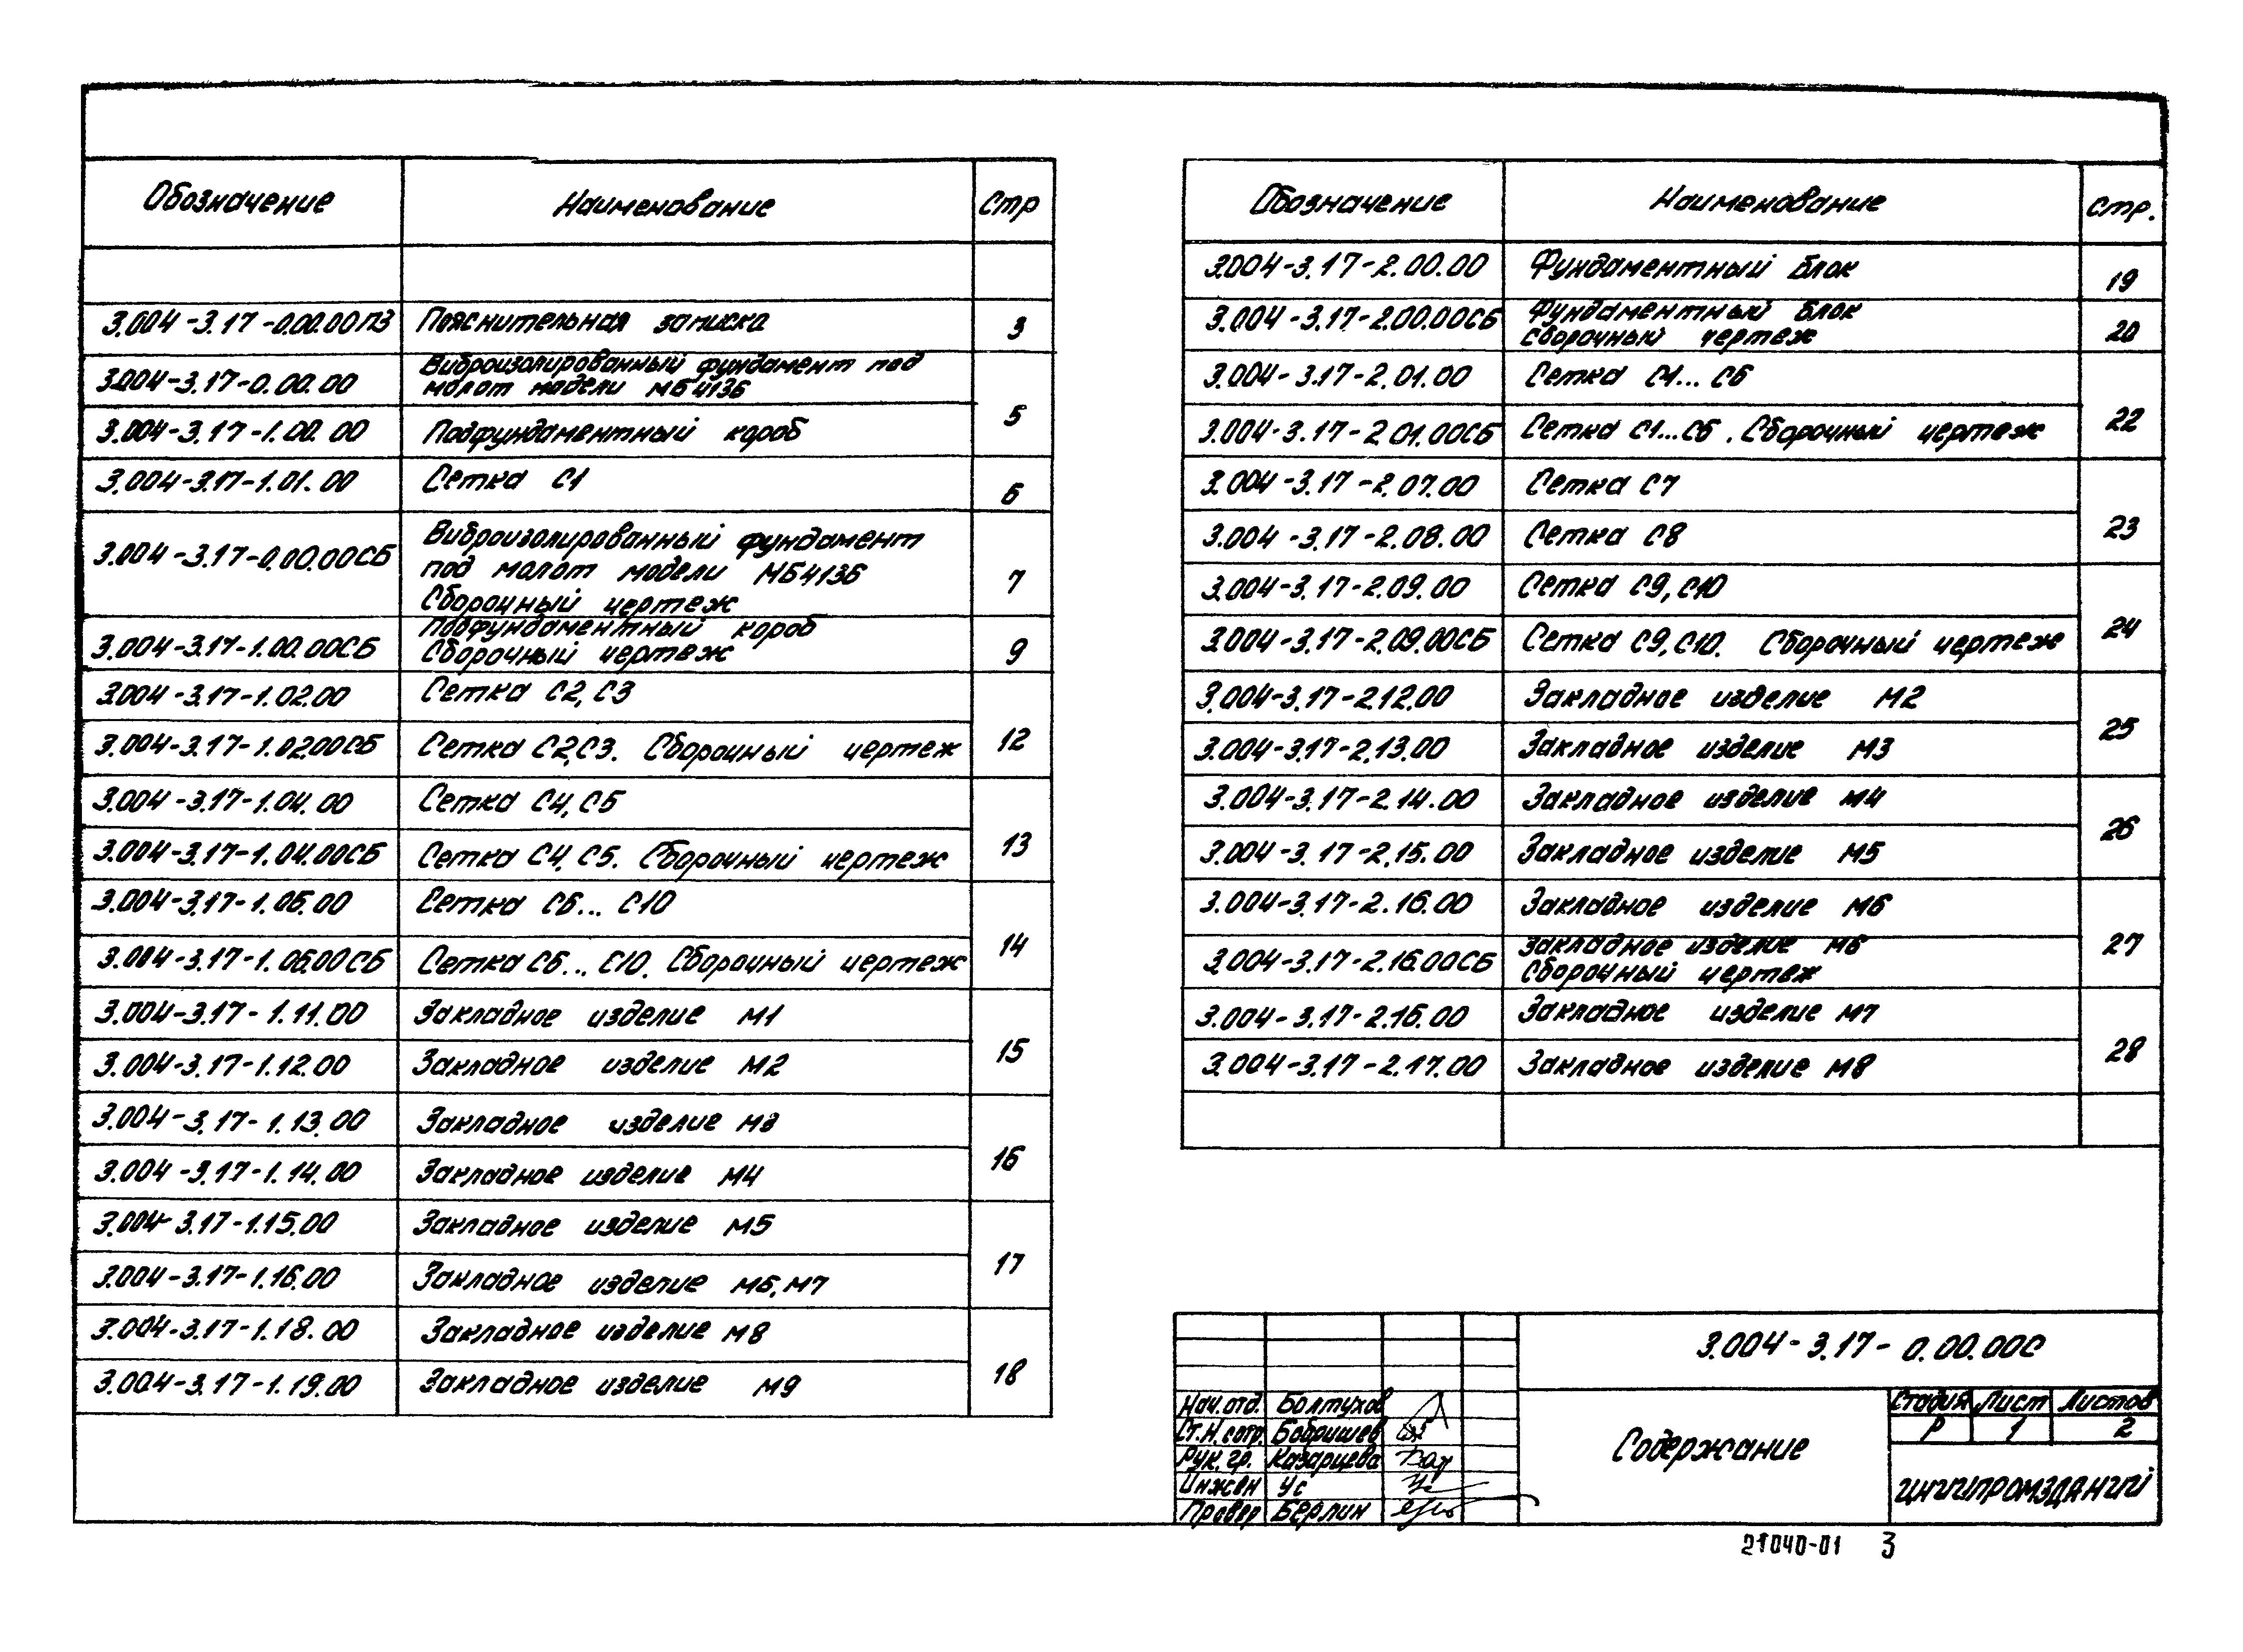 Обозначение Наименование Стр
3.004-3.17-0.00.00ПЗ Пояснительная записка 3
3.004-3.17-0.00.00 Виброизолированный фундамент под
молот модели МБ4136
5
3.004-3.17-1.00.00 Подфундаментный короб
3.004-3.17-1.01.00 Сетка С1 6
3.004-3.17-0.00.00СБ Виброизолированный фундамент
под молот модели МБ4136
Сборочный чертеж
7
3.004-3.17-1.00.00СБ Подфундаментный короб
Сборочный чертеж
9
3.004-3.17-1.02.00 Сетка С2, С3
12
3.004-3.17-1.02.00СБ Сетка С2,С3. Сборочный чертеж
3.004-3.17-1.04.00 Сетка С4, С5
13
3.004-3.17-1.04.00СБ Сетка С4, С5. Сборочный чертеж
3.004-3.17-1.06.00 Сетка С6... С10
14
3.004-3.17-1.06.00СБ Сетка С6... С10. Сборочный чертеж
3.004-3.17-1.11.00 Закладное изделие М1
15
3.004-3.17-1.12.00 Закладное изделие М2
3.004-3.17-1.13.00 Закладное изделие М3
16
3.004-3.17-1.14.00 Закладное изделие М4
3.004-3.17-1.15.00 Закладное изделие М5
17
3.004-3.17-1.16.00 Закладное изделие М6, М7
3.004-3.17-1.18.00 Закладное изделие М8
18
3.004-3.17-1.19.00 Закладное изделие М9
Обозначение Наименование Стр.
3.004-3.17-2.00.00 Фундаментный блок 19
3.004-3.17-2.00.00СБ Фундаментный блок
сборочный чертеж
20
3.004-3.17-2.01.00 Сетка С1... С6
22
3.004-3.17-2.01.00СБ Сетка С1...С6. Сборочный чертеж
3.004-3.17-2.07.00 Сетка С7
23
3.004-3.17-2.08.00 Сетка С8
3.004-3.17-2.09.00 Сетка С9, С10
24
3.004-3.17-2.09.00СБ Сетка С9, С10. Сборочный чертеж
3.004-3.17-2.12.00 Закладное изделие М2
25
3.004-3.17-2.13.00 Закладное изделие М3
3.004-3.17-2.14.00 Закладное изделие М4
26
3.004-3.17-2.15.00 Закладное изделие М5
3.004-3.17-2.16.00 Закладное изделие М6
27
3.004-3.17-2.16.00СБ Закладное изделие М6
Сборочный чертеж
3.004-3.17-2.16.00 Закладное изделие М7
28
3.004-3.17-2.17.00 Закладное изделие М8
3.004-3.17-0.00.00С
Нач.отд. Болтухов
Ст.н.сотр. Бобришев
Рук. гр. Казарцева
Инжен Ус
Провер Берлин
Содержание
Стадия Лист Листов
Р 1 2
ЦНИИПРОМЗДАНИЙ
21040-01 3